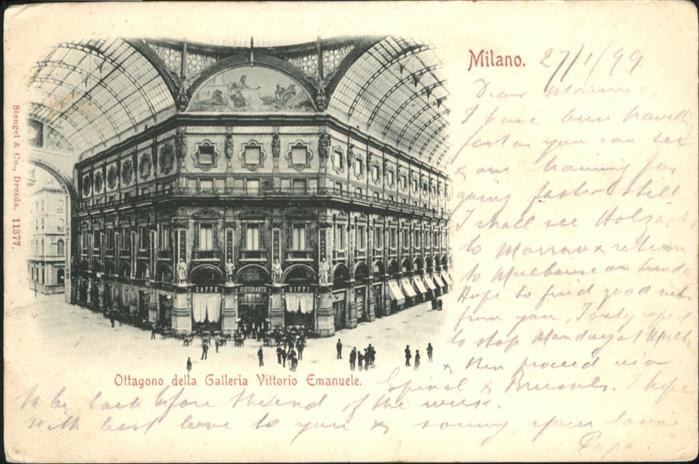 Milano. 27/1/99
Dear
I have been travelling
fast as you can see
& am training for
going faster still
I shall see
to morrow & return
to Mulhouse on Sunday
Hope to find good
from you, I only
to stop Monday at
& then proceed via
Epinal & Brussels. I hope
to be back before the end of the week.
With best love to you & sonny, yours
Papa
CAFFÈ RISTORANTE BIFFI
Ottagono della Galleria Vittorio Emanuele.
Stengel & Co., Dresda. 11377.